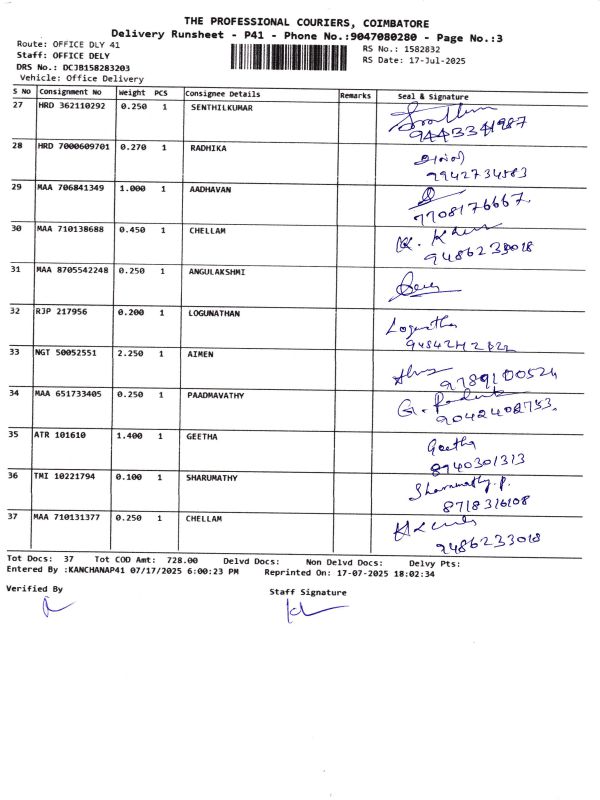 THE PROFESSIONAL COURIERS, COIMBATORE
Delivery Runsheet - P41 - Phone No.:9047080280 - Page No.:3
Route: OFFICE DLY 41
RS No.: 1582832
Staff: OFFICE DELY
RS Date: 17-Jul-2025
DRS No.: DCJB158283203
Vehicle: Office Delivery
S No Consignment No Weight PCS Consignee Details Remarks Seal & Signature
27 HRD 362110292 0.250 1 SENTHILKUMAR
9443341987
28 HRD 7000609701 0.270 1 RADHIKA
9942734583
29 MAA 706841349 1.000 1 AADHAVAN
7708176667.
30 MAA 710138688 0.450 1 CHELLAM
9486233018
31 MAA 8705542248 0.250 1 ANGULAKSHMI
32 RJP 217956 0.200 1 LOGUNATHAN
Logunathan
33 NGT 50052551 2.250 1 AIMEN
9789100524
34 MAA 651733405 0.250 1 PAADMAVATHY
9042402753.
35 ATR 101610 1.400 1 GEETHA
Geetha
8940301313
36 TMI 10221794 0.100 1 SHARUMATHY
Sharumathy.P.
8718316108
37 MAA 710131377 0.250 1 CHELLAM
9486233018
Tot Docs: 37 Tot COD Amt: 728.00 Delvd Docs: Non Delvd Docs: Delvy Pts:
Entered By :KANCHANAP41 07/17/2025 6:00:23 PM Reprinted On: 17-07-2025 18:02:34
Verified By
Staff Signature